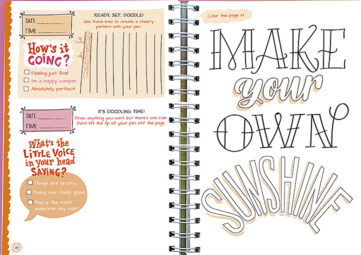 READY, SET, DOODLE!
Use these lines to create a cheery
pattern with your pen.
DATE
TIME
How's it
GOING?
Feeling just fine!
I'm a happy camper
Absolutely perfect
IT'S DOODLING TIME!
Draw anything you want but there's one rule
Don't lift the tip of your pen off the page
DATE
TIME
What's the
LITTLE VOICE
in your head
SAYING?
Things are groovy
Today was really good
This is the most
awesome day ever!
Color this page in!
MAKE
your
OWN
SUNSHINE